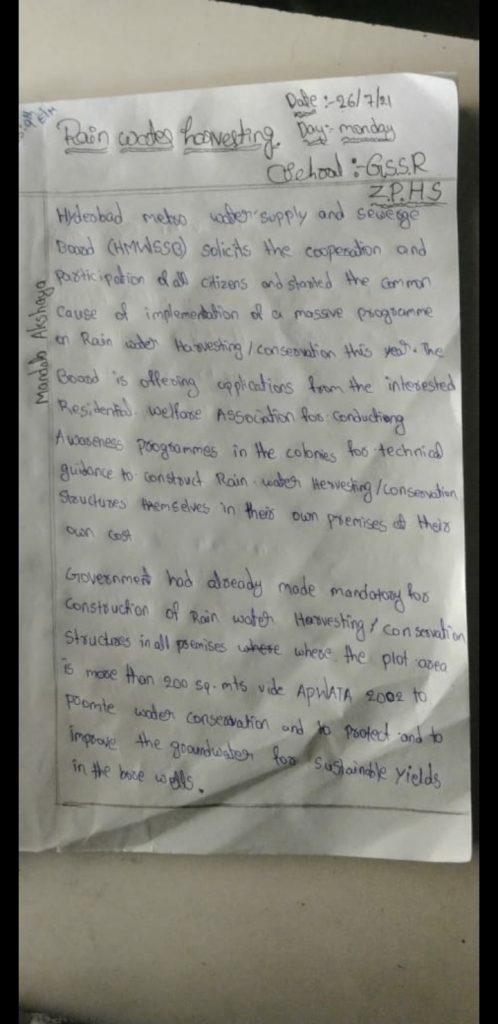 Date :- 26/7/21
Rain water harvesting. Day:- monday
School :- G.S.S.R
Z.P.H.S
Mandab Akshaya
Hyderabad metro water supply and sewerge
Board (HMWSSB) solicits the cooperation and
participation of all citizens and started the common
cause of implementation of a massive programme
on Rain water Harvesting/conservation this year. The
Board is offering applications from the interested
Residential welfare Association for conducting
Awareness programmes in the colonies for technical
guidance to construct Rain water Hervesting/conservation
Structures themselves in their own premises at their
own cost
Government had already made mandatory for
construction of Rain water Harvesting/conservation
Structures in all premises where where the plot area
is more than 200 sq.mts vide APWATA 2002 to
poomte water conservation and to protect and to
improve the groundwater for sustainable yields
in the bore wells.